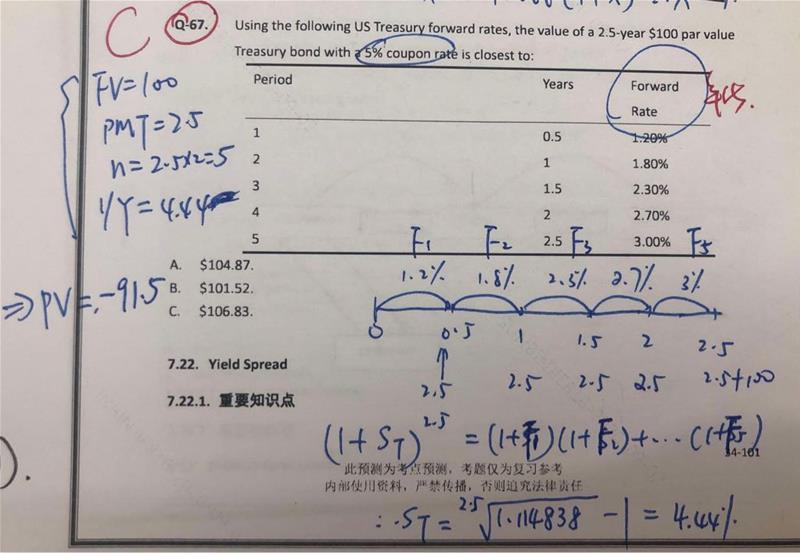 C
Q-67. Using the following US Treasury forward rates, the value of a 2.5-year $100 par value
Treasury bond with a 5% coupon rate is closest to:
Period Years Forward Rate
1 0.5 1.20%
2 1 1.80%
3 1.5 2.30%
4 2 2.70%
5 2.5 3.00%
FV=100
PMT=2.5
n=2.5×2=5
1/Y=4.44
⇒PV=-91.5
A. $104.87.
B. $101.52.
C. $106.83.
F1 F2 F3 F5
1.2% 1.8% 2.3% 2.7% 3%
0 0.5 1 1.5 2 2.5
2.5 2.5 2.5 2.5 2.5+100
7.22. Yield Spread
7.22.1. 重要知识点
(1+ST)^2.5 = (1+F1)(1+F2)+...(1+F5)
34-101
此预测为考点预测，考题仅为复习参考
内部使用资料，严禁传播，否则追究法律责任
∴ST = 2.5√1.114838 - 1 = 4.44%